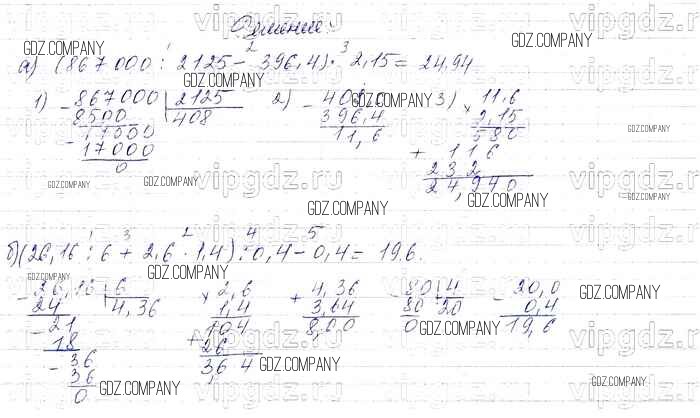 Решение:
а) (867000 : 2125 - 396,4) · 2,15 = 24,94
1) 867000 | 2125
8500 408
17000
17000
0
2) 408,0
396,4
11,6
3) 11,6
× 2,15
580
+ 116
232
24,940
б) (26,16 : 6 + 2,6 · 1,4) : 0,4 - 0,4 = 19,6.
26,16 | 6
24 4,36
21
18
36
36
0
× 2,6
1,4
104
+ 26
364
+ 4,36
3,64
8,00
80 | 4
80 20
0
- 20,0
0,4
19,6
GDZ.COMPANY
vipgdz.ru